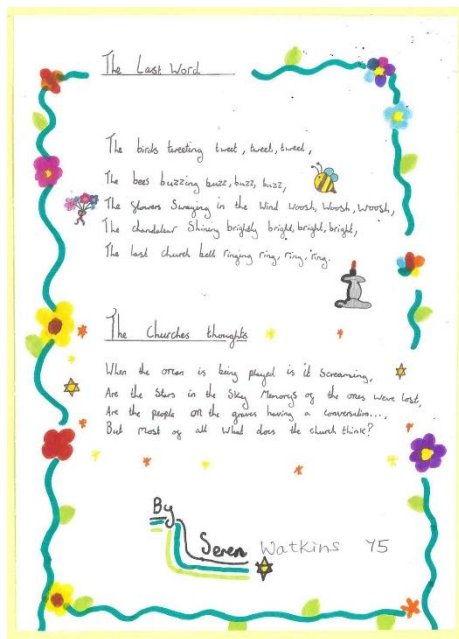 The Last Word
The birds tweeting tweet, tweet, tweet,
The bees buzzing buzz, buzz, buzz,
The flowers Swaying in the Wind Woosh, Woosh, Woosh,
The chandeleur Shining brightly bright, bright, bright,
The last church bell ringing ring, ring, ring.
The Churches thoughts
When the orran is being played is it Screaming,
Are the Stars in the Sky Memorys of the ones Weve lost,
Are the people on the graves having a conversation...,
But Most of all What does the church think?
By
Seren Watkins Y5